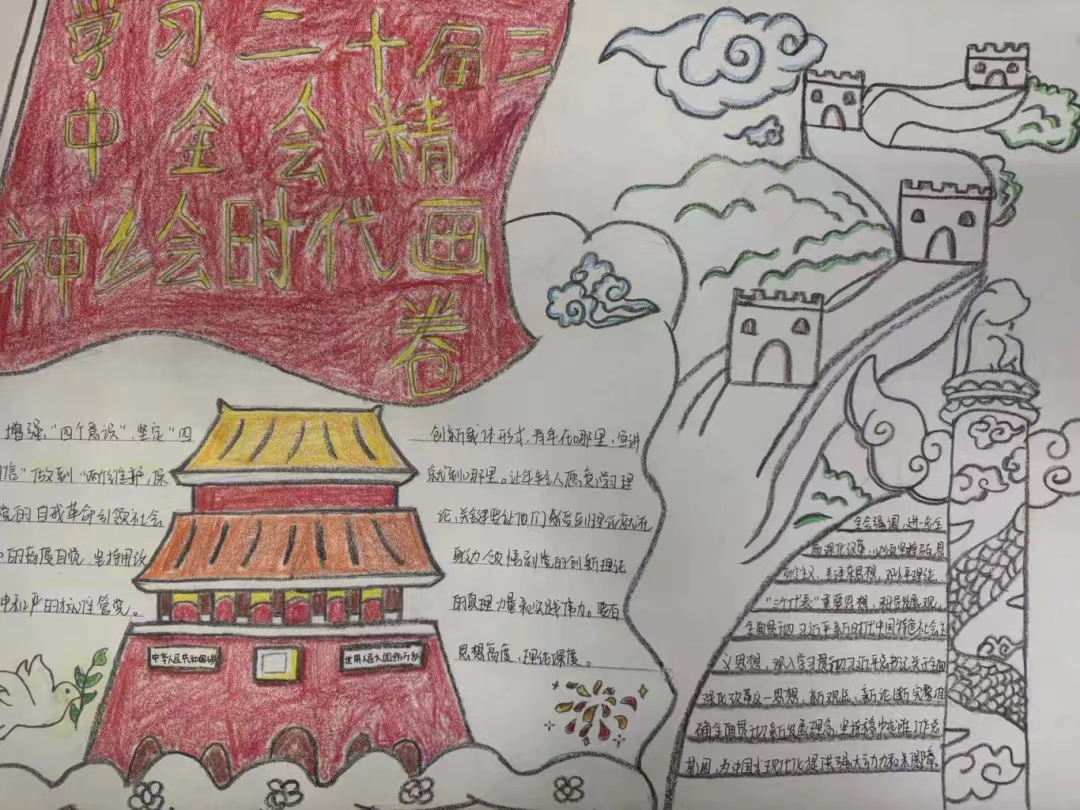 学习二十届三
中全会精
神 绘时代画
卷
增强"四个意识"、坚定"四
信"做到"两个维护,保
的自我革命引领社会
的高度自觉,坚持用改
和严的标准管党。
中华人民共和国万岁
世界人民大团结万岁
创新载体形式,青年在哪里,宣讲
就到哪里。让年轻人愿意学习理
论、
助力领悟到党的创新理论
的真理力量和实践伟力。要有
思想高度,理论深度。
全会强调,进一步全
面深化改革,必须坚持马克思
列主义、毛泽东思想,邓小平理论,
"三个代表"重要思想,科学发展观,
全面贯彻习近平新时代中国特色社会主
义思想,深入学习贯彻习近平总书记关于全面
深化改革的一系列思想、新观点、新论断完整准
确全面贯彻新发展理念,坚持稳中求进工作总
基调,为中国式现代化提供强大动力和制度保障。